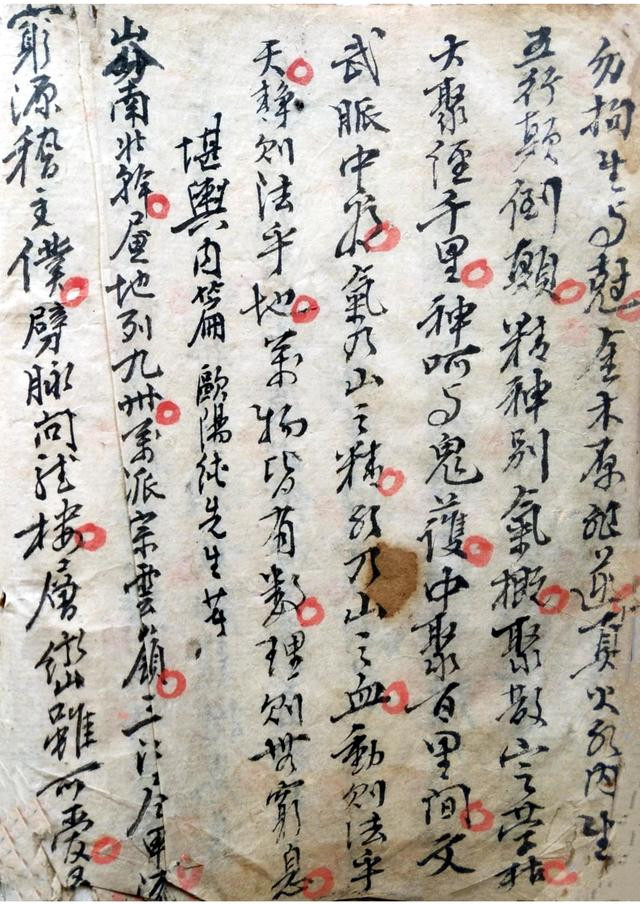 勿拘生与尅金木原非逆真火水內生
五行顛倒顛精神別氣概聚散定荣枯
大聚徑千里神呵与鬼護中聚百里間文
武脈中水氣乃山之精水乃山之血動則法乎
天静則法乎地萬物皆有数理則無窮息
堪輿內篇歐陽純先生著
南北幹屋地列九州萬派宗雲嶺三江
窮源稽主僕劈脉问龍樓層巒雖可愛